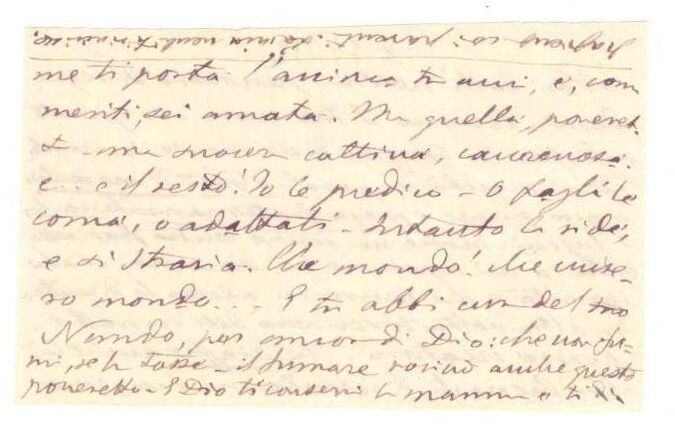 me ti porta. l'amica tu ami, e, come
meriti, sei amata. Ma quella, poveret-
ta - una suocera cattiva, cancrenosa.
e... e il resto! Io le predico - O fagli la
coma, o adattati - Intanto la ride,
e si strazia. Che mondo! che mise-
ro mondo... - E tu abbi cura del tuo
Nando, per amor di Dio: che non fu-
mi, se ha tosse - il fumare rovinò anche questo
poveretto - E Dio ti conservi la mamma e ti